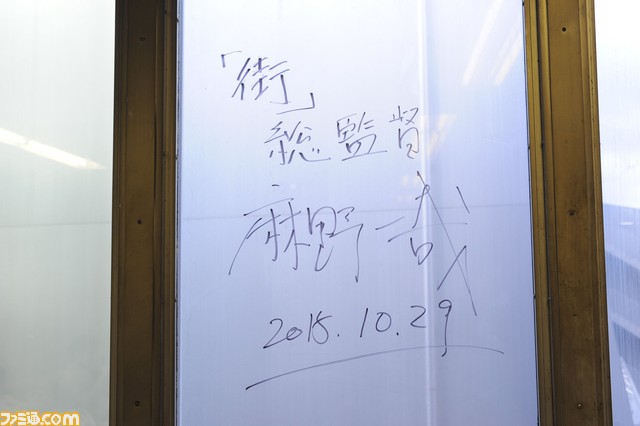 「街」
総監督
麻野一哉
2015.10.29
ファミ通.com